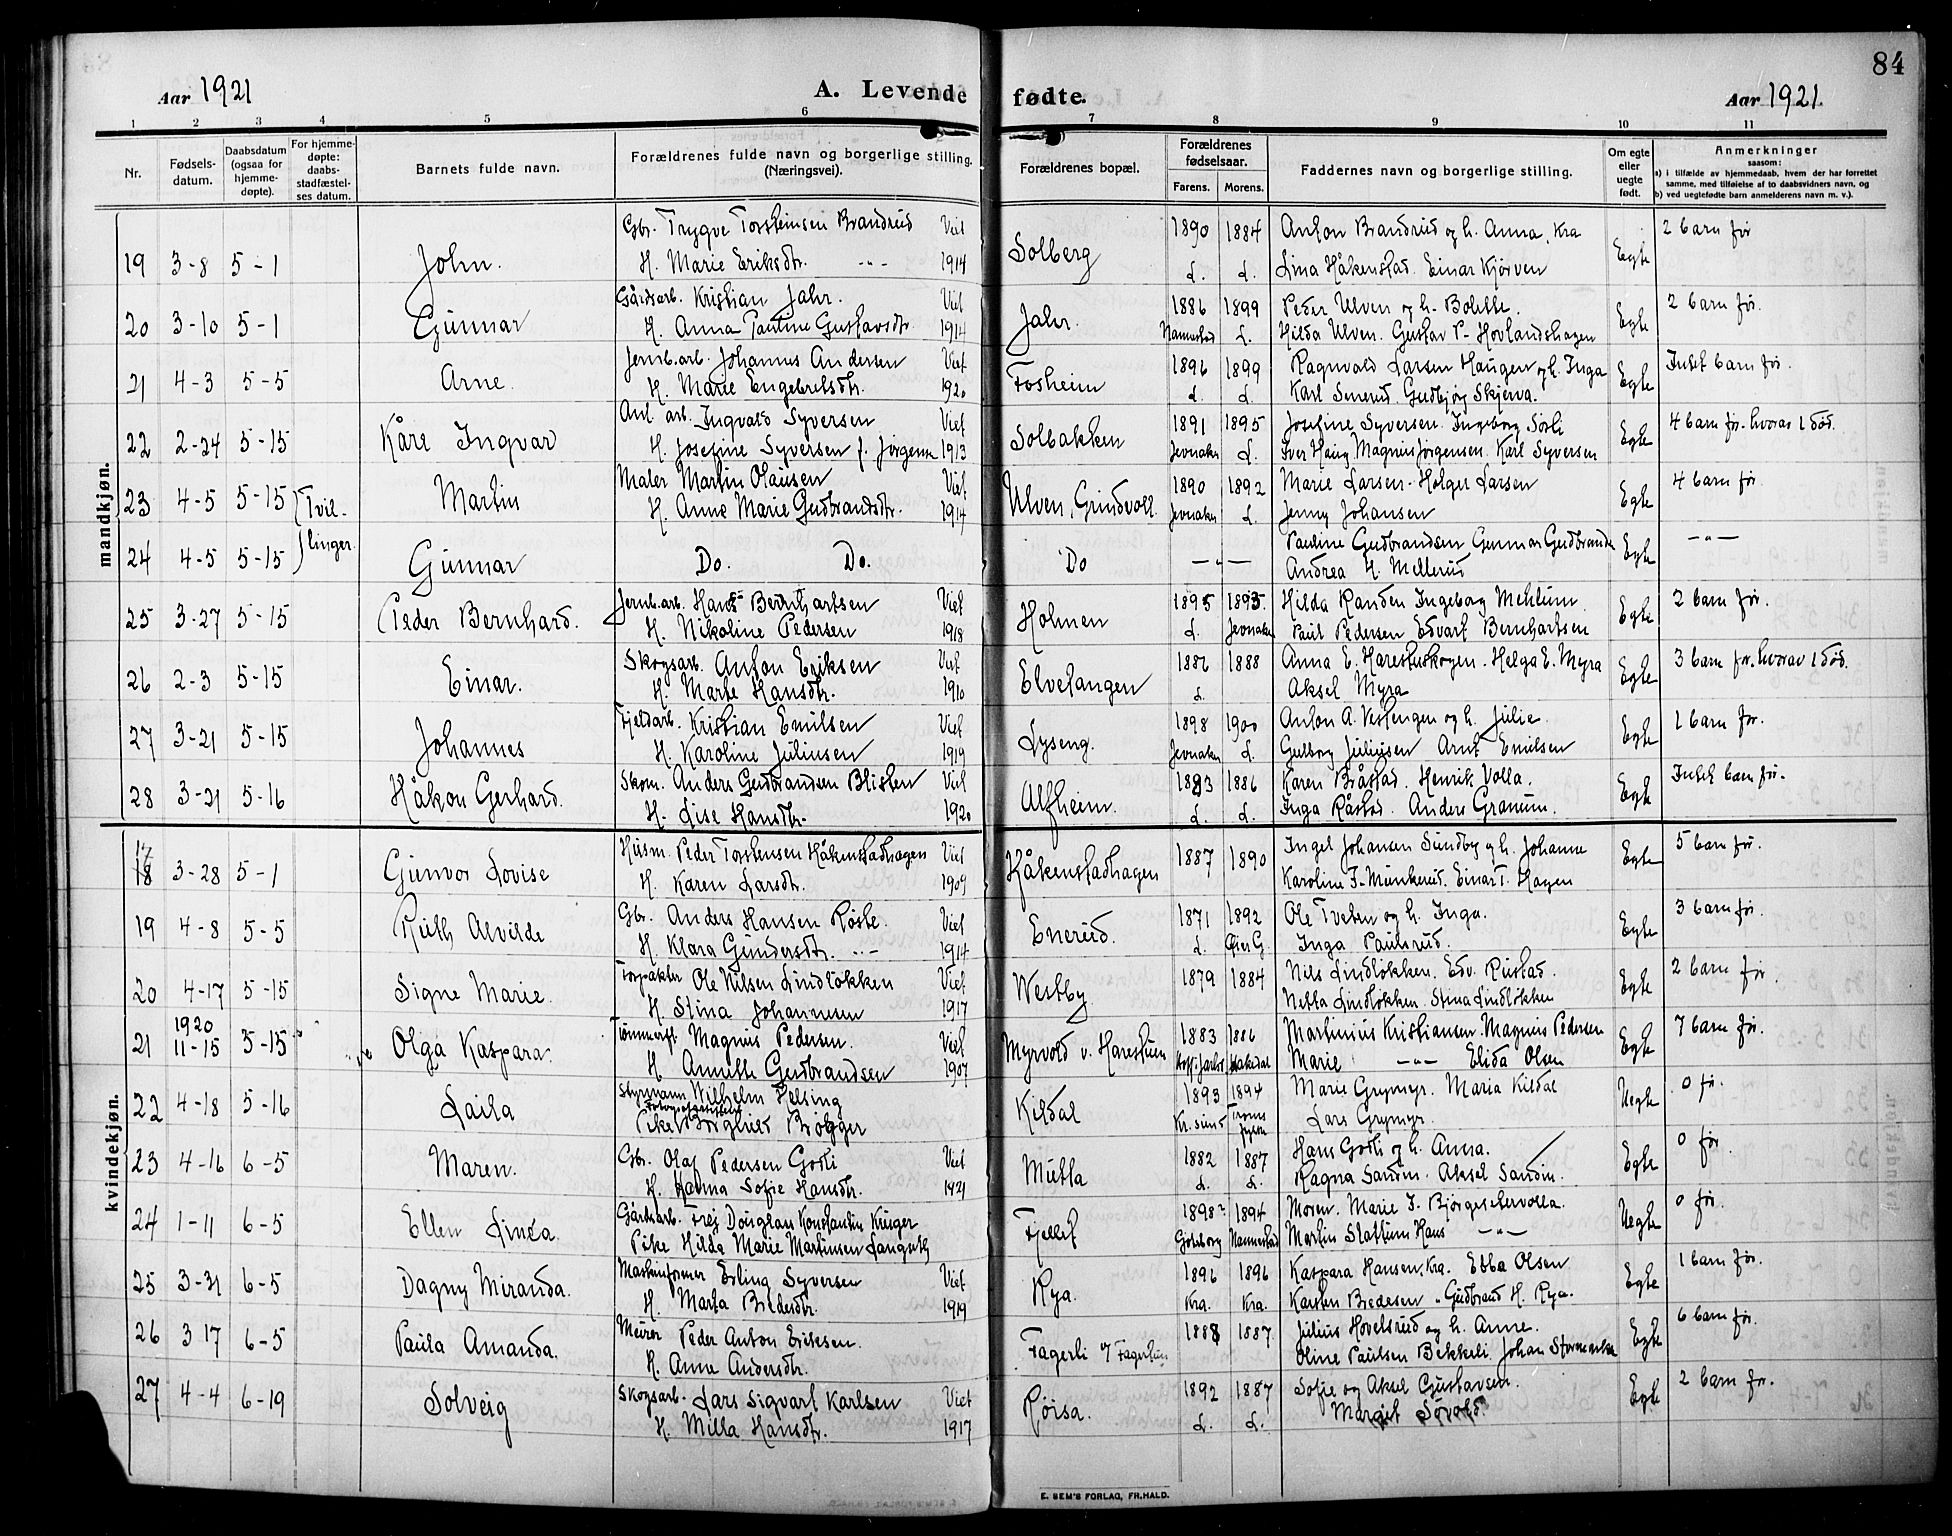 84
Aar 1921
A. Levende
fødte.
Aar 1921.
1 2 3 4 5 6 7 8 9 10 11
Nr.
Fødsels-
datum.
Daabsdatum
(ogsaa for
hjemme-
døpte).
For hjemme-
døpte:
daabs-
stadfæstel-
ses datum.
Barnets fulde navn.
Forældrenes fulde navn og borgerlige stilling.
(Næringsvei).
Forældrenes bopæl.
Forældrenes
fødselsaar.
Farens. Morens.
Faddernes navn og borgerlige stilling.
Om egte
eller
uegte
født.
Anmerkninger
saasom:
a) i tilfælde av hjemmedaab, hvem der har forrettet
samme, med tilføielse af to daabsvidners navn, og
b) ved uegtefødte barn anmelderens navn m. v.).
mandkjøn.
Gbr. Trygve Torsteinsen Brandrud Viet 1890 1884 Anton Brandrud og h. Anna, Kra 2 barn før
19 3-8 5-1 John. H. Marie Eriksdtr. -"- 1914 Solberg L. L. Lina Håkenstad. Einar Kjørven Egte
Gårdsarb. Kristian Jahr. Viet 1886 1899 Peder Ulven og h. Bolette. 2 barn før.
20 3-10 5-1 Gunnar H. Anna Pauline Gustavsdtr. 1914 Jahr. Nannestad L. Hilda Ulven. Gustav P. Hovlandshagen Egte
Jernb.arb. Johannes Andersen Viet 1896 1899 Ragnvald Larsen Haugen og h. Inga Intet barn før.
21 4-3 5-5 Arne. H. Marie Engebretsdtr. 1920 Fosheim L. L. Karl Gudbjørg Skjerva. Egte
Anl. arb. Ingvald Syversen Viet 1891 1895 Josefine Syversen. Ingeborg Sørli 4 barn før. hvorav 1 død.
22 2-24 5-15 Kåre Ingvar H. Josefine Syversen f. Jørgensen 1913 Solbakken Jevnaker L. Iver Haug. Magnus Jørgensen. Karl Syversen Egte
Maler Martin Olausen Viet 1890 1892 Marie Larsen. Holger Larsen 4 barn før.
23 4-5 5-15 Tvil- Martin H. Anne Marie Gudbrandsdtr. 1914 Ulven, Grindvoll. Jevnaker L. Jenny Johansen Egte
linger. Pauline Gudbrandsen Gunnar Gudbrands -"-
24 4-5 5-15 Gunnar Do. Do. Do -"- Andrea H. Mellerud Egte
Jernb.arb. Hans Bernhartsen Viet 1895 1895. Hilda Randen Ingeborg Mehlum 2 barn før.
25 3-27 5-15 Peder Bernhard. H. Nikoline Pedersen 1918 Holmen L. Jevnaker Paul Pedersen Edvart Bernhartsen Egte
Skogsarb. Anton Eriksen Viet 1886 1888 Anna E. Harestuskogen. Helga E. Myra 3 barn før. hvorav 1 død.
26 2-3 5-15 Einar. H. Marte Hansdtr. 1910 Elvetangen L. Aksel Myra Egte
Fjeldarb. Kristian Emilsen Viet 1898 1900 Anton A. Vestengen og h. Julie. 1 barn før.
27 3-21 5-15 Johannes H. Karoline Juliusen 1919 Lyseng. Jevnaker L. Gulborg Juliusen Arnt Emilsen Egte
Skom. Anders Gudbrandsen Blisten Viet 1883 1886 Karen Bråstad. Henrik Volla. Intet barn før.
28 3-21 5-16 Håkon Gerhard. H. Lise Hansdtr. 1920 Alfheim. L. L. Inga Råstad. Anders Granum. Egte
kvindekjøn.
17 Husm. Peder Torstensen Håkenstadhagen Viet 1887 1890 Ingel Johansen Sundby og h. Johanne 5 barn før.
18 3-28 5-1 Gunvor Lovise H. Karen Larsdtr. 1909 Håkenstadhagen Karoline F. Munkerud. Einar T. Hagen Egte
Gbr. Anders Hansen Røste. Viet 1871 1892 Ole Tveten og h. Inga. 3 barn før.
19 4-8 5-5 Ruth Alvilde H. Klara Gundersdtr. -"- 1914 Enerud. L. Øier G. Inga Paulsrud. Egte
Forpakter Ole Nilsen Lindløkken Viet 1879 1884 Nils Lindløkken. Edv. Rustad. 2 barn før.
20 4-17 5-15 Signe Marie. H. Stina Johannesen 1917 Westby. Netta Lindløkken. Stina Lindløkken Egte
1920 Tømmerft. Magnus Pedersen. Viet 1883 1886 Martinius Kristiansen. Magnus Pedersen 7 barn før.
21 11-15 5-15 Olga Kaspara. H. Annette Gudbrandsen 1907 Myrvold v. Harestuen Hakedal Marie -"- Elida Olsen Egte
Styrmann Wilhelm Helsing 1893 1894 Marie Grymyr. Maria Kildal 0 før.
22 4-18 5-16 Laila Pike Borghild Brøgger Kildal Kr.sund Lars Grymyr. Uegte
Gbr. Olaf Pedersen Godli Viet 1882 1887 Hans Godli og h. Anna. 0 før.
23 4-16 6-5 Maren. H. Hanna Sofie Hansdtr. 1921 Mutta L. L. Ragna Sandin. Aksel Sandin. Egte
Gårdsarb. Frej Douglan Konstantin Kruger 1898? 1894 Moren. Marie F. Bjørgeseter volla. 0 før.
24 1-11 6-5 Ellen Linda. Pike Hilda Marie Martinsen Langseth Fjellet Göteborg Nannestad Martin Slattum Hans -"- Uegte
Maskinformer Erling Syversen Viet 1896 1896 Kaspara Hansen, Kra. Ebba Olsen 1 barn før.
25 3-31 6-5 Dagny Miranda. H. Marta Bredesdtr. 1919 Rya. Kra. Kra. Karsten Bredesen. Gudbrand H. Rya. Egte
Murer Peder Anton Eriksen. 1888 1887. Julius Hovelsrud og h. Anne. 6 barn før.
26 3 17 6-5 Paula Amanda. H. Anne Andersdtr. Fagerli Oline Paulsen Bekkeli. Johan Egte
Skogsarb. Lars Sigvart Karlsen Viet 1892 1887 Sofie og Aksel Gustavsen. 2 barn før.
27 4-4 6-19 Solveig H. Milla Hansdtr. 1917 Røisa. L. L. Margit Søvold. Egte
E. SEM'S FORLAG, FR.HALD.